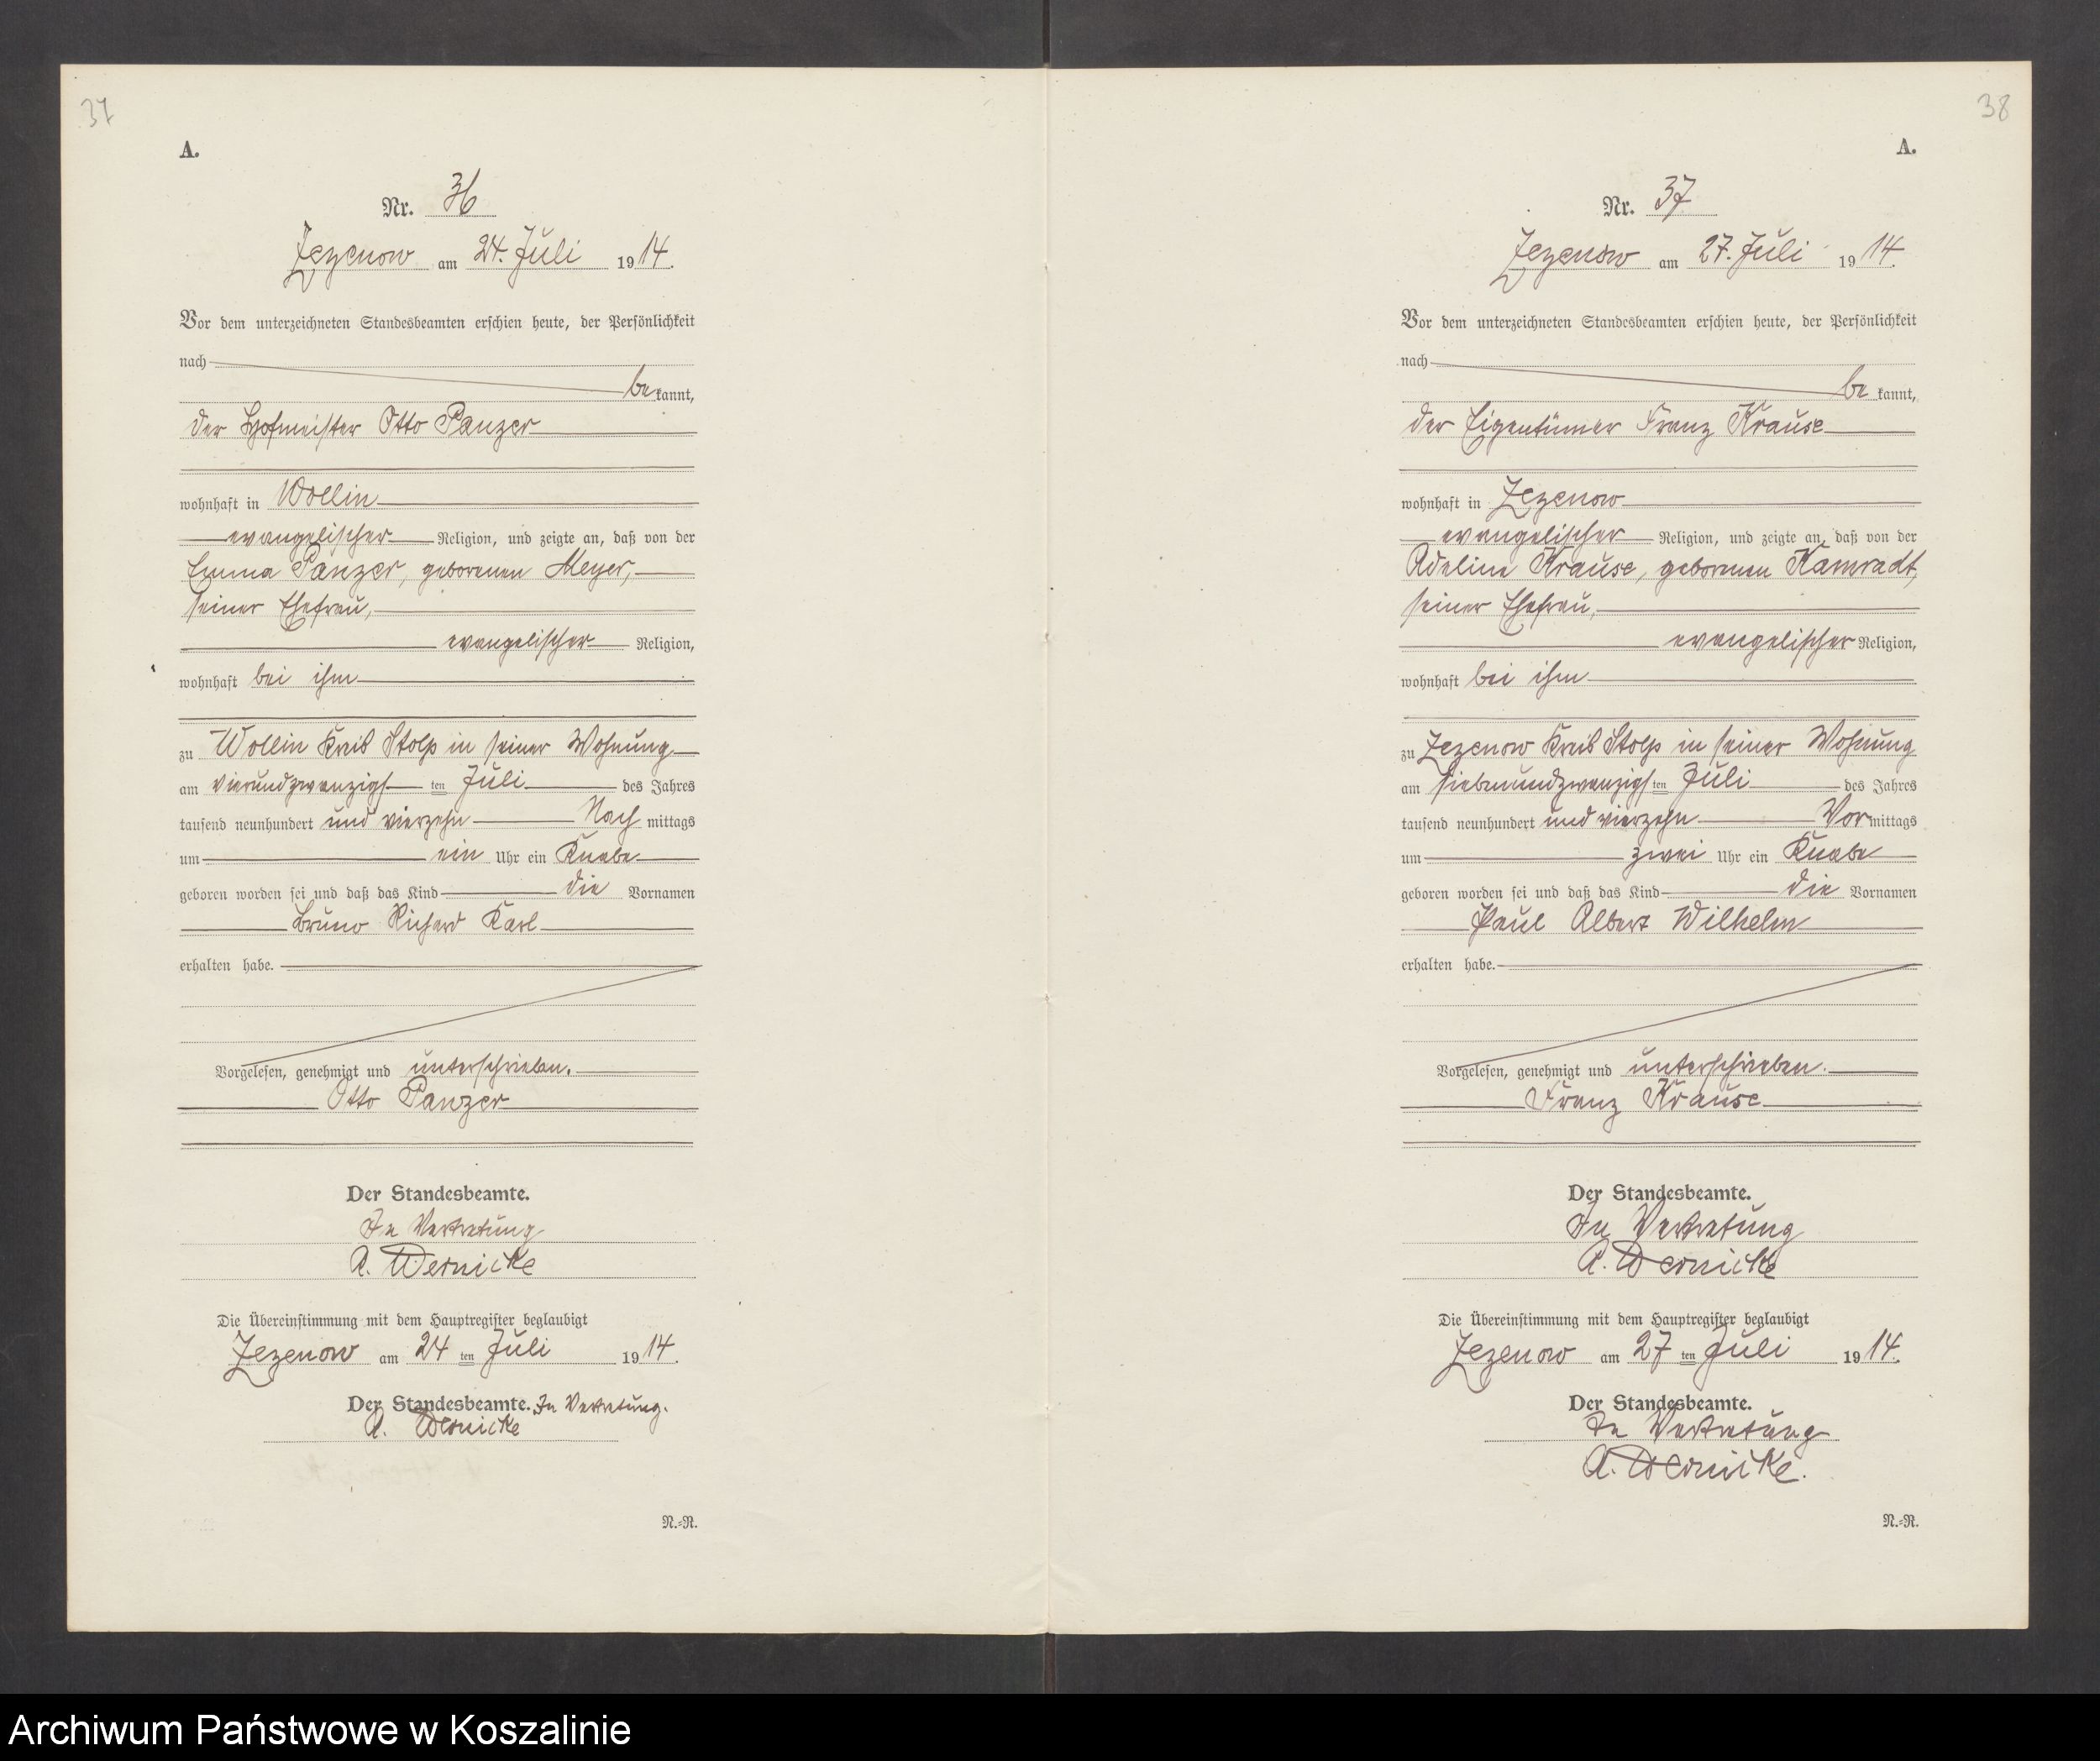 37
A.
Nr. 36
Zezenow am 24. Juli 1914.
Vor dem unterzeichneten Standesbeamten erschien heute, der Persönlichkeit
nach
be kannt,
der Hofmeister Otto Panzer
wohnhaft in Wollin
evangelischer Religion, und zeigte an, daß von der
Emma Panzer, geborenen Meyer,
seiner Ehefrau,
evangelischer Religion,
wohnhaft bei ihm
zu Wollin Kreis Stolp in seiner Wohnung
am vierundzwanzigs ten Juli des Jahres
tausend neunhundert und vierzehn Nach mittags
um ein Uhr ein Knabe
geboren worden sei und daß das Kind die Vornamen
Bruno Richard Karl
erhalten habe.
Vorgelesen, genehmigt und unterschrieben.
Otto Panzer
Der Standesbeamte.
In Vertretung
A. Wernicke
Die Übereinstimmung mit dem Hauptregister beglaubigt
Zezenow am 24 ten Juli 1914.
Der Standesbeamte. In Vertretung.
A. Wernicke
N.=R.
38
A.
Nr. 37
Zezenow am 27. Juli 1914.
Vor dem unterzeichneten Standesbeamten erschien heute, der Persönlichkeit
nach
be kannt,
der Eigentümer Franz Krause
wohnhaft in Zezenow
evangelischer Religion, und zeigte an, daß von der
Adeline Krause, geborenen Kamradt,
seiner Ehefrau,
evangelischer Religion,
wohnhaft bei ihm
zu Zezenow Kreis Stolp in seiner Wohnung
am siebenundzwanzigs ten Juli des Jahres
tausend neunhundert und vierzehn Vor mittags
um zwei Uhr ein Knabe
geboren worden sei und daß das Kind die Vornamen
Paul Albert Wilhelm
erhalten habe.
Vorgelesen, genehmigt und unterschrieben.
Franz Krause
Der Standesbeamte.
In Vertretung
A. Wernicke
Die Übereinstimmung mit dem Hauptregister beglaubigt
Zezenow am 27 ten Juli 1914.
Der Standesbeamte.
In Vertretung
A. Wernicke.
N.=R.
Archiwum Państwowe w Koszalinie